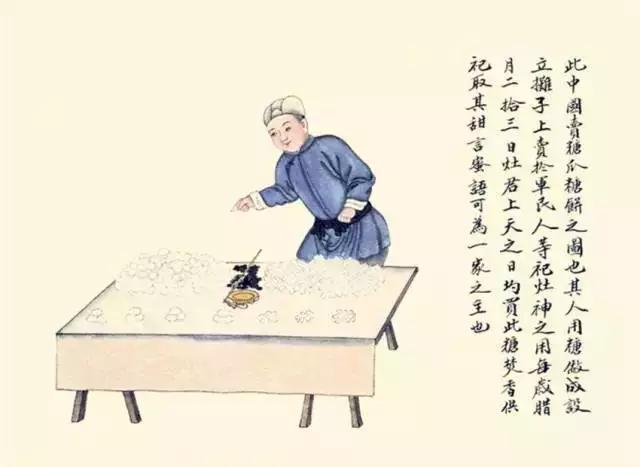 此中國賣糖瓜糖餅之圖也其人用糖做成設
立攤子上賣於軍民人等祀灶神之用每歲腊
月二拾三日灶君上天之日均買此糖焚香供
祀取其甜言蜜語可為一家之主也